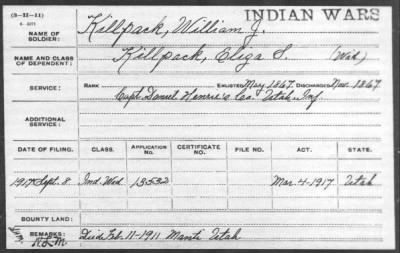 (3-22-11)
6-3277
INDIAN WARS
NAME OF SOLDIER: Killpack, William J.
NAME AND CLASS OF DEPENDENT: Killpack, Eliza S. (Wid.)
SERVICE: RANK ENLISTED May 1867. DISCHARGED Nov. 1867.
Capt. Daniel Henrie's Co. Utah. Inf.
ADDITIONAL SERVICE:
DATE OF FILING. CLASS. APPLICATION No. CERTIFICATE No. FILE NO. ACT. STATE.
1917 Sept. 8. Ind. Wid. 13532 Mar. 4-1917. Utah
BOUNTY LAND:
REMARKS: Died Feb. 11-1911 Manti Utah